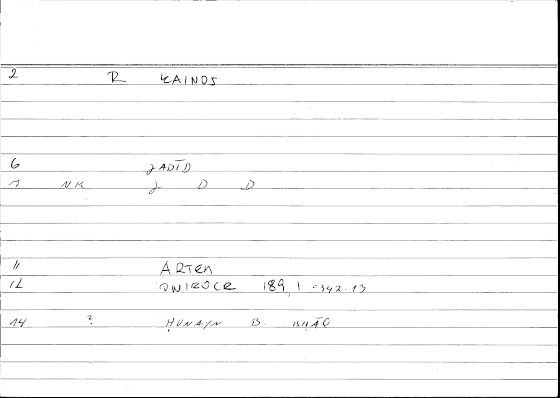 2 R KAINOS
6 ǧADĪD
7 NK ǧ D D
11 ARTEM
12 ONIROCR 189,1 = 342.13
14 ? ḤUNAYN B. ISḤĀQ